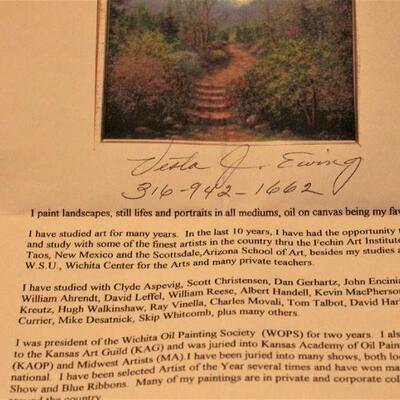 Vesta J. Ewing
316-942-1662
I paint landscapes, still lifes and portraits in all mediums, oil on canvas being my fav
I have studied art for many years. In the last 10 years, I have had the opportunity t
and study with some of the finest artists in the country thru the Fechin Art Institute
Taos, New Mexico and the Scottsdale,Arizona School of Art, besides my studies a
W.S.U., Wichita Center for the Arts and many private teachers.
I have studied with Clyde Aspevig, Scott Christensen, Dan Gerhartz, John Encinia
William Ahrendt, David Leffel, William Reese, Albert Handell, Kevin MacPherson
Kreutz, Hugh Walkinshaw, Ray Vinella, Charles Movali, Tom Talbot, David Harl
Currier, Mike Desatnick, Skip Whitcomb, plus many others.
I was president of the Wichita Oil Painting Society (WOPS) for two years. I also
to the Kansas Art Guild (KAG) and was juried into Kansas Academy of Oil Paint
(KAOP) and Midwest Artists (MA).I have been juried into many shows, both loc
national. I have been selected Artist of the Year several times and have won ma
Show and Blue Ribbons. Many of my paintings are in private and corporate col
around the country.